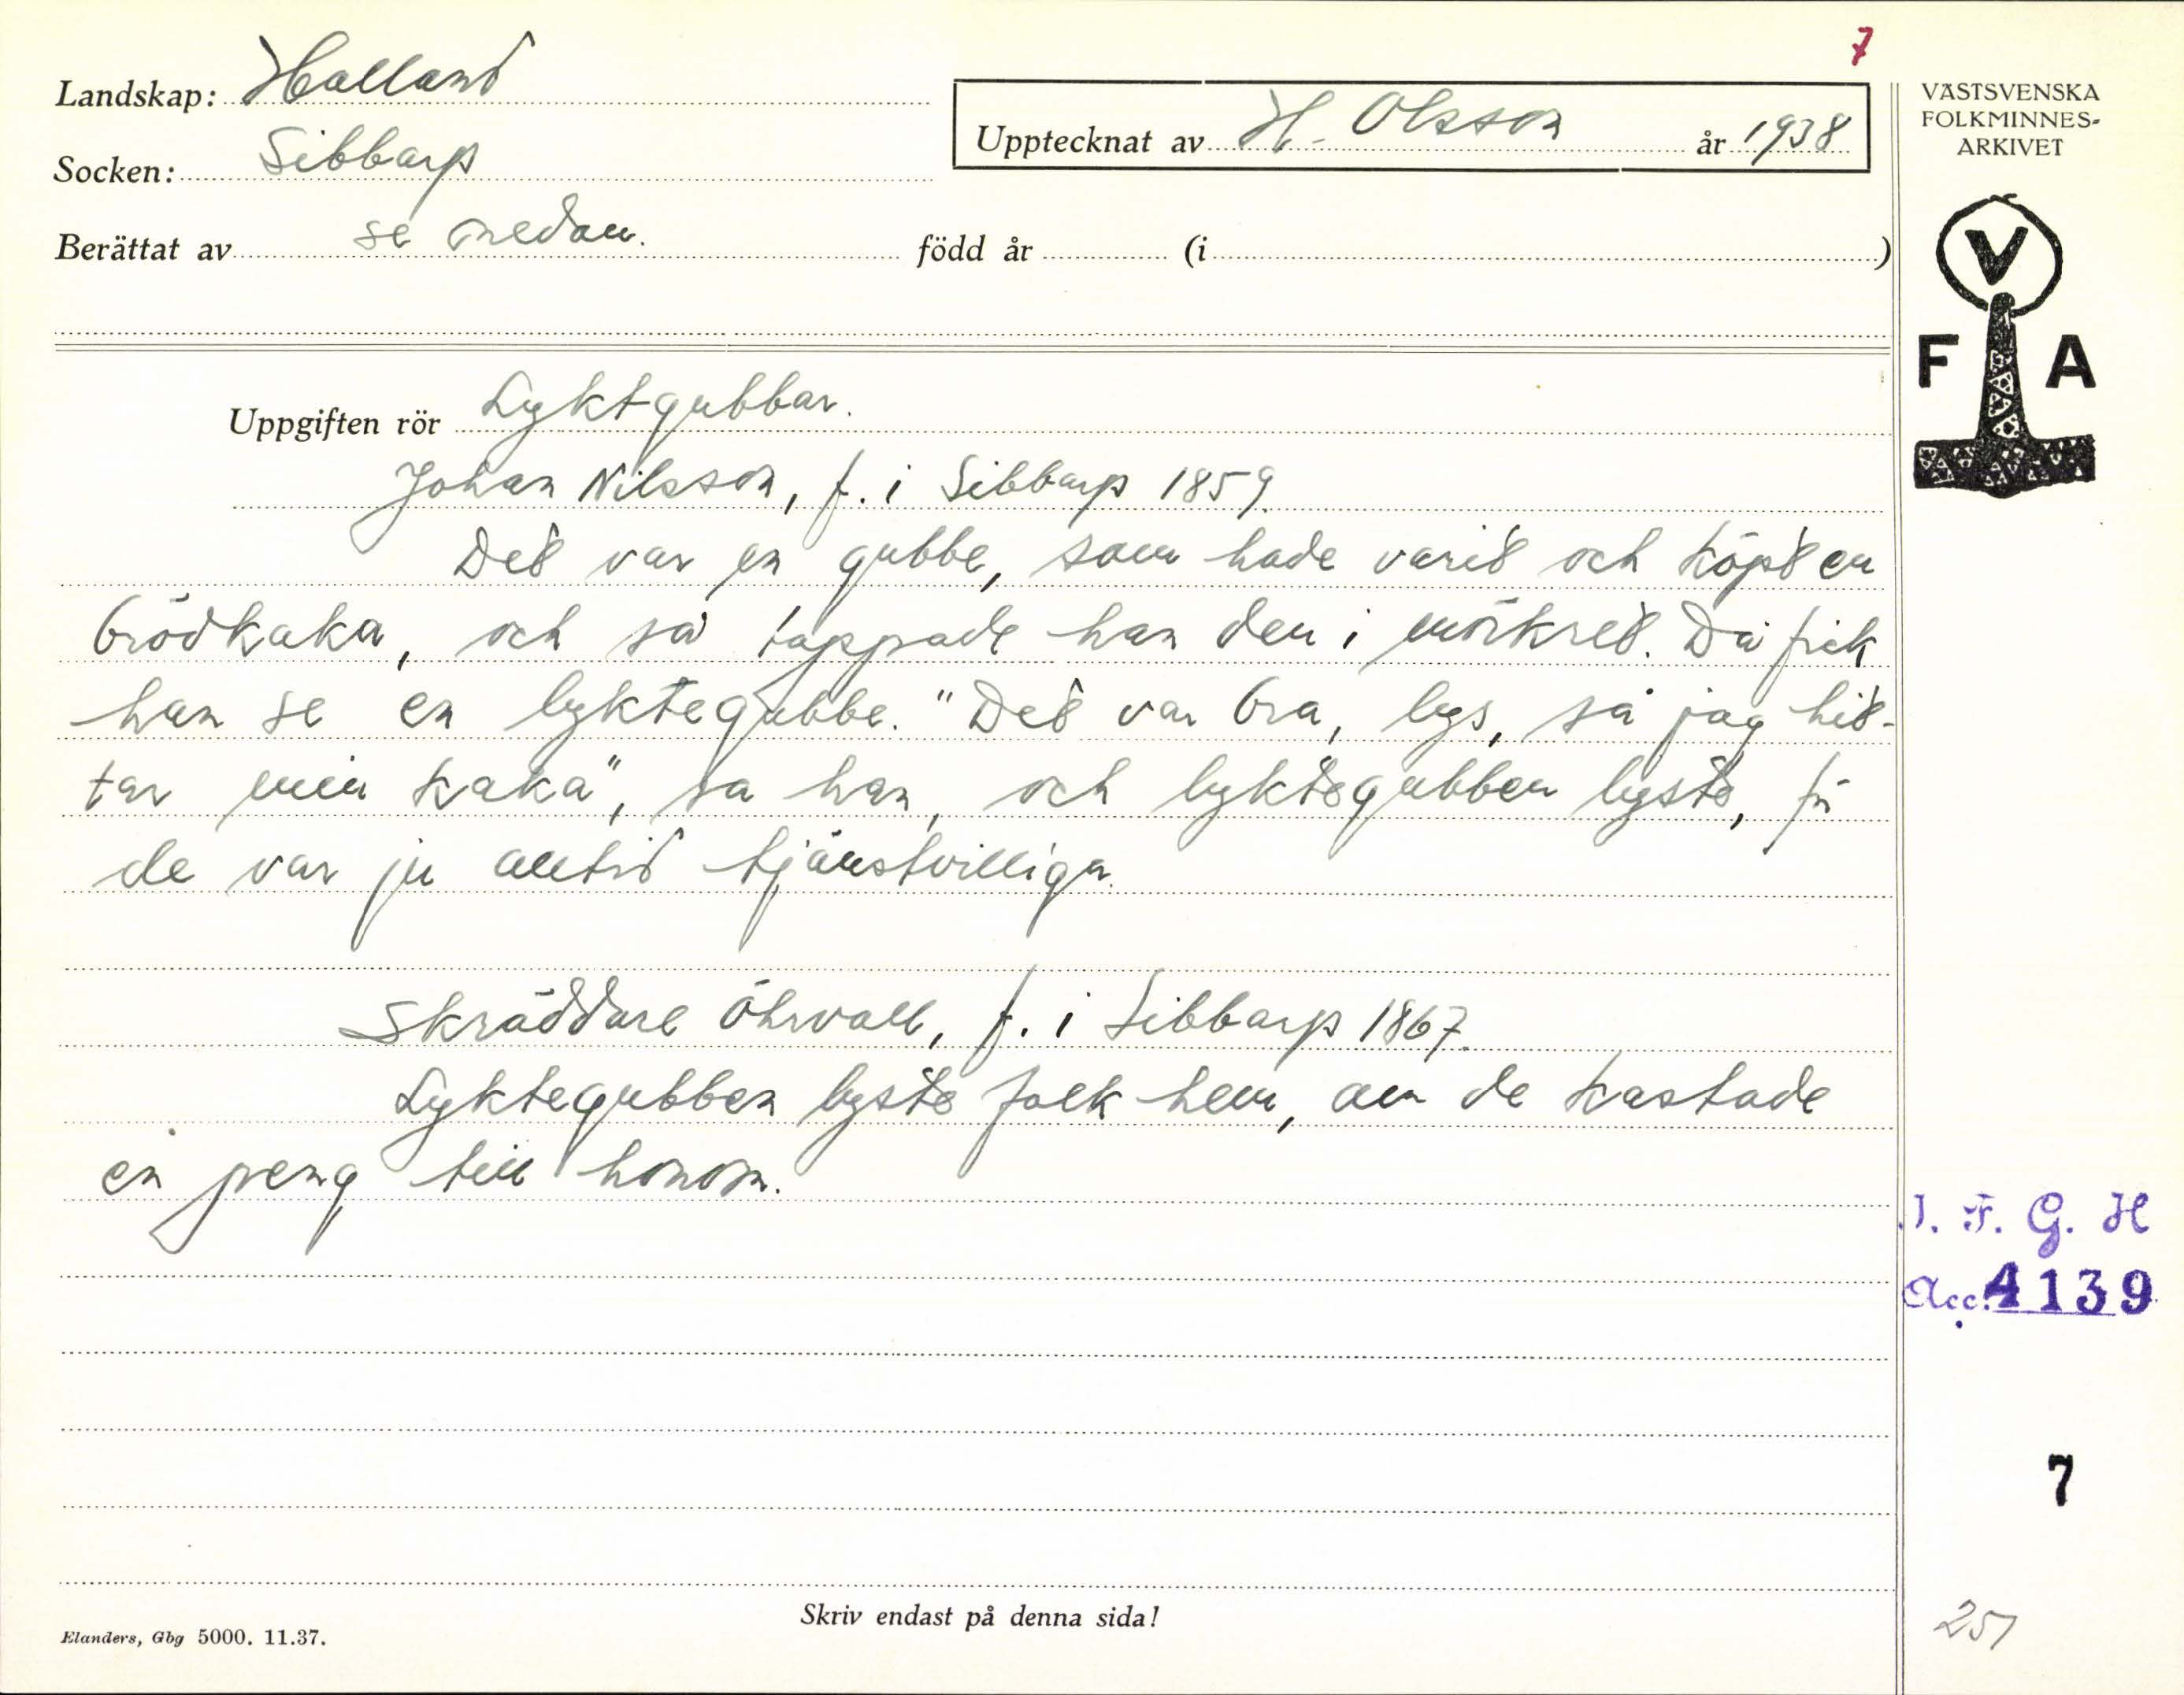 7
Landskap: Halland
Socken: Sibbarp
Upptecknat av H. Olsson år 1938
Berättat av se nedan. född år (i )
VÄSTSVENSKA
FOLKMINNES-
ARKIVET
V
F A
Uppgiften rör Lyktgubbar.
Johan Nilsson, f. i Sibbarp 1859.
Det var en gubbe, som hade varit och köpt en
brödkaka, och så tappade han den i mörkret. Då fick
han se en lyktegubbe. "Det var bra, lys, så jag hit-
tar min kaka", sa han, och lyktegubben lyste, för
de var ju alltid tjänstvilliga.
Skräddare Öhrvall, f. i Sibbarp 1867.
Lyktegubben lyste folk hem, om de kastade
en peng till honom.
I. F. G. H
Acc. 4139
7
251
Skriv endast på denna sida!
Elanders, Gbg 5000. 11.37.